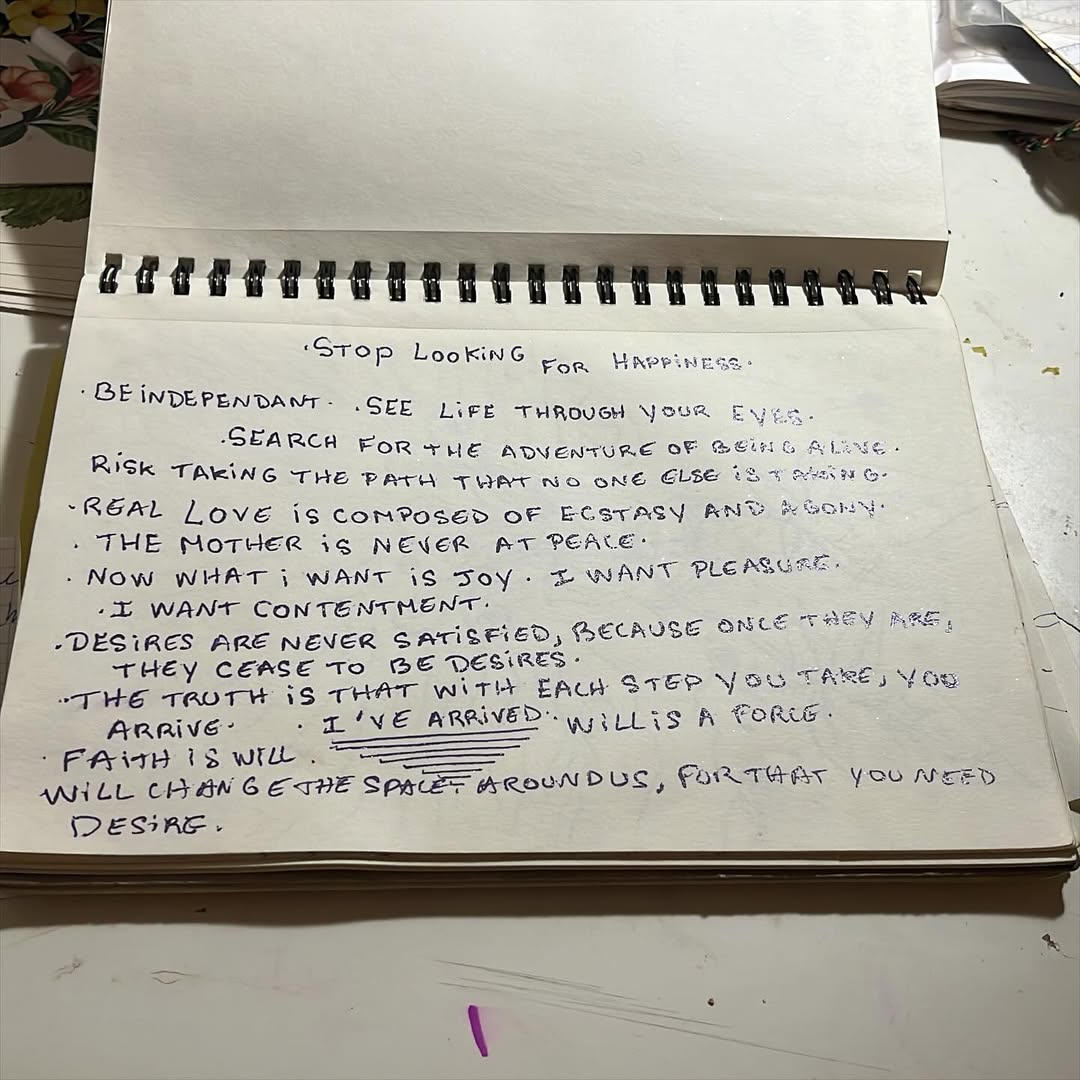 ·STOP LOOKING FOR HAPPINESS·
·BE INDEPENDANT· ·SEE LIFE THROUGH YOUR EYES·
·SEARCH FOR THE ADVENTURE OF BEING ALIVE·
RISK TAKING THE PATH THAT NO ONE ELSE IS TAKING·
·REAL LOVE IS COMPOSED OF ECSTASY AND AGONY·
· THE MOTHER IS NEVER AT PEACE·
· NOW WHAT i WANT IS JOY · I WANT PLEASURE·
·I WANT CONTENTMENT·
·DESIRES ARE NEVER SATISFIED, BECAUSE ONCE THEY ARE,
THEY CEASE TO BE DESIRES·
·THE TRUTH IS THAT WITH EACH STEP YOU TAKE, YOU
ARRIVE· · I'VE ARRIVED· · WILL IS A FORCE·
· FAITH IS WILL·
WILL CHANGE THE SPACE AROUND US, FOR THAT YOU NEED
DESIRE·